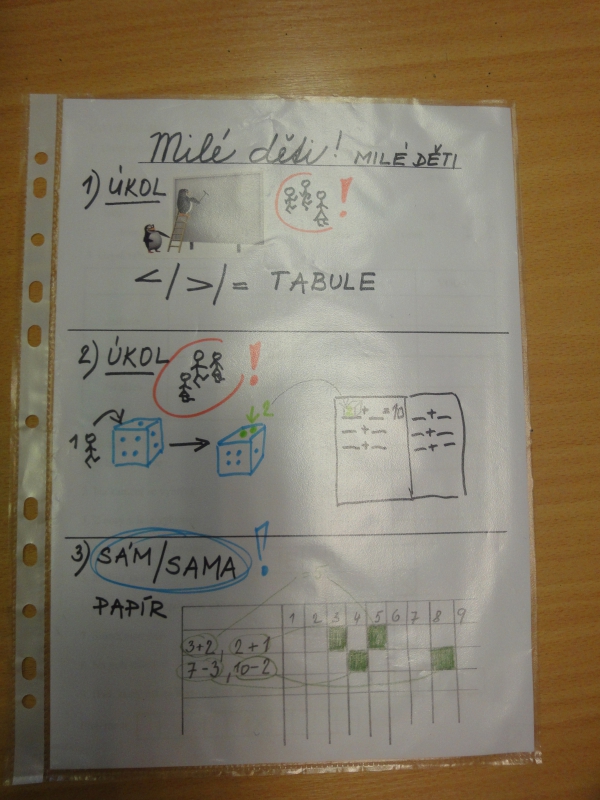 Milé děti! MILÉ DĚTI
1) ÚKOL !
</>/= TABULE
2) ÚKOL !
1 2
_+_=10 _+_
_+_ _+_
_+_ _+_
3) SÁM/SAMA !
PAPÍR
1 2 3 4 5 6 7 8 9
3+2, 2+1
7-3, 10-2